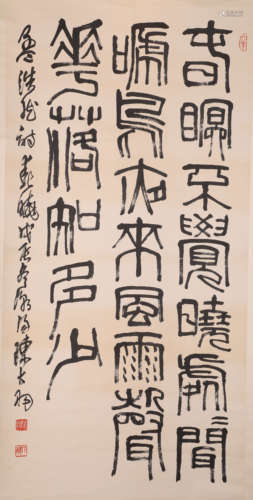 春眠不覺曉處〻聞
啼鳥夜來風雨聲
花落知多少
孟浩然詩春曉戊辰陳大羽